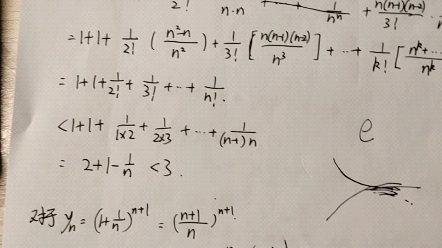 2! n·n 1/n^n + n(n-1)(n-2)/3!
= 1+1+ 1/2! ( (n²-n)/n² ) + 1/3! [ n(n-1)(n-2)/n³ ] + ··+ 1/k! [ n^k+···/n^k
= 1+1+ 1/2! + 1/3! + ··+ 1/n! .
< 1+1+ 1/(1×2) + 1/(2×3) + ··+ 1/((n-1)n)
e
= 2+1- 1/n < 3 .
对于 yn = (1+ 1/n)^(n+1) = ( (n+1)/n )^(n+1)